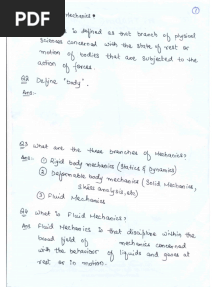 PDF
1
Mechanics?
is defined as that branch of physical
science concerned with the state of rest or
motion of bodies that are subjected to the
action of forces.
Q2 Define "body".
Ans:-
Q3 What are the three branches of Mechanics?
Ans:- ① Rigid body mechanics (Statics & Dynamics)
② Deformable body mechanics (Solid Mechanics,
stress analysis, etc)
③ Fluid Mechanics
Q4 What is Fluid Mechanics?
Ans Fluid Mechanics is that discipline within the
broad field of mechanics concerned
with the behaviour of liquids and gases at
rest or in motion.